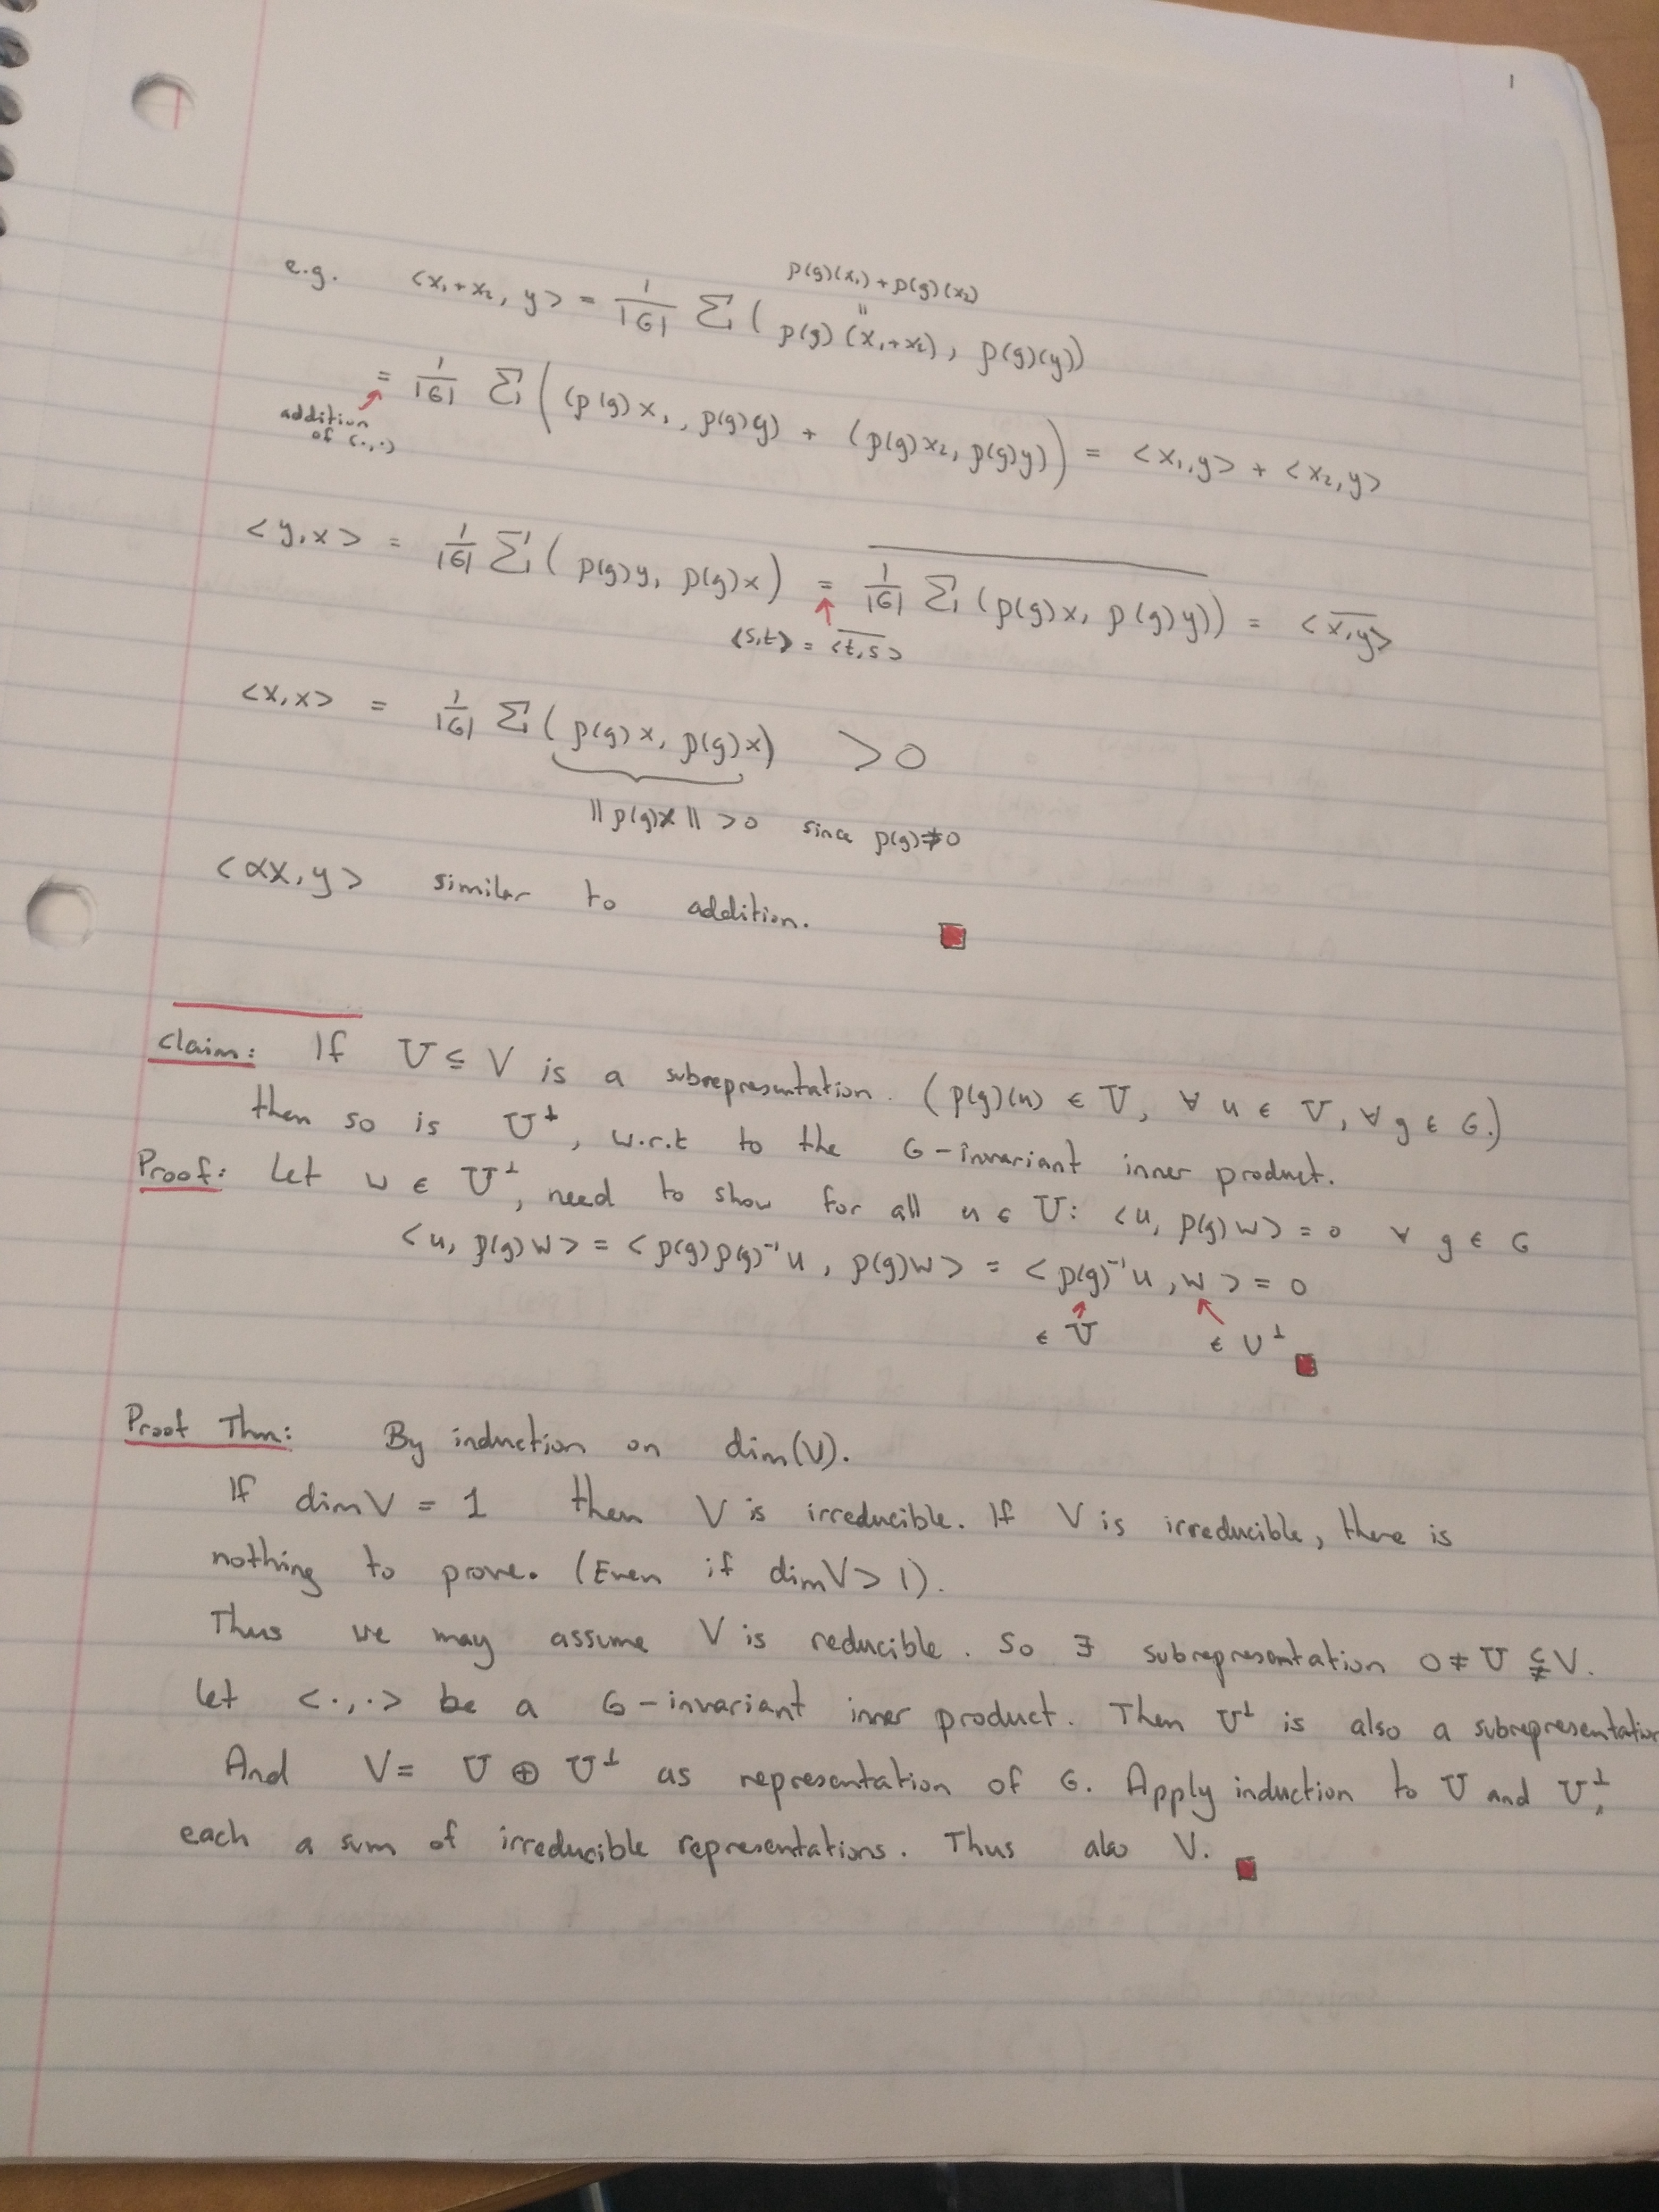 1
p(g)(x₁) + p(g)(x₂)
"
e.g. <x₁+x₂, y> = 1/|G| Σ ( p(g) (x₁+x₂), p(g)(y))
= 1/|G| Σ ( (p(g)x₁, p(g)y) + (p(g)x₂, p(g)y) ) = <x₁,y> + <x₂,y>
addition
of (·,·)
<y,x> = 1/|G| Σ ( p(g)y, p(g)x ) = \overline{1/|G| Σ (p(g)x, p(g)y)} = \overline{<x,y>}
<s,t> = \overline{<t,s>}
<x,x> = 1/|G| Σ ( p(g)x, p(g)x ) > 0
|| p(g)x || > 0 since p(g) ≠ 0
<αx,y> similar to addition.
Claim: If U ⊆ V is a subrepresentation. (p(g)(u) ∈ U, ∀ u ∈ U, ∀ g ∈ G.)
then so is U^⊥, w.r.t to the G-invariant inner product.
Proof: Let w ∈ U^⊥, need to show for all u ∈ U: <u, p(g)w> = 0 ∀ g ∈ G
<u, p(g)w> = <p(g)p(g)⁻¹u, p(g)w> = <p(g)⁻¹u, w> = 0
∈ U ∈ U^⊥
Proof Thm: By induction on dim(V).
If dimV = 1 then V is irreducible. If V is irreducible, there is
nothing to prove. (Even if dimV > 1).
Thus we may assume V is reducible. So ∃ subrepresentation 0 ≠ U ⊊ V.
Let <·,·> be a G-invariant inner product. Then U^⊥ is also a subrepresentation
And V = U ⊕ U^⊥ as representation of G. Apply induction to U and U^⊥,
each a sum of irreducible representations. Thus also V.